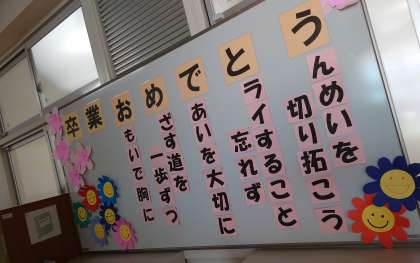 卒業おめでとう
もいで胸に
ざす道を
一歩ずつ
あいを大切に
ライすること
忘れず
んめいを
切り拓こう